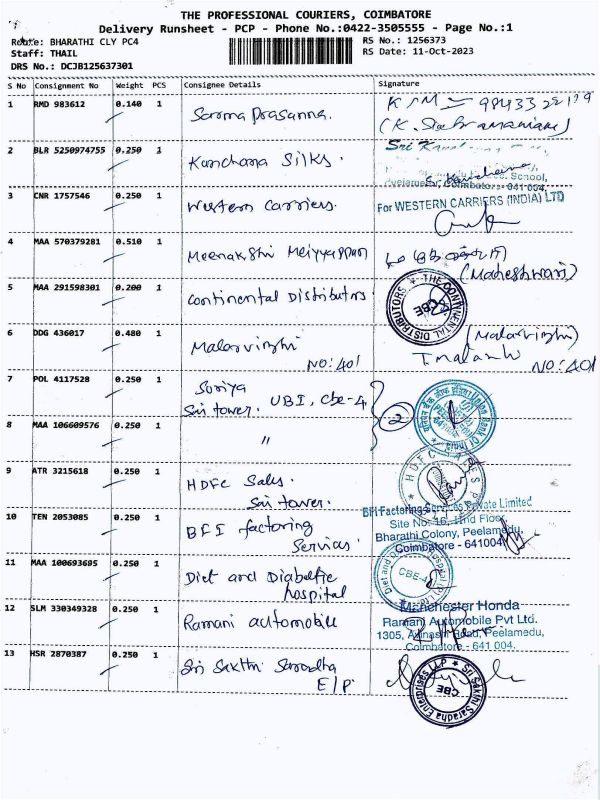 THE PROFESSIONAL COURIERS, COIMBATORE
Delivery Runsheet - PCP - Phone No.:0422-3505555 - Page No.:1
Route: BHARATHI CLY PC4
Staff: THAIL
DRS No.: DCJB125637301
RS No.: 1256373
RS Date: 11-Oct-2023
S No Consignment No Weight PCS Consignee Details Signature
1 RMD 983612 0.140 1 Prasanna.
2 BLR 5250974755 0.250 1 Kanchana Silks.
Sri
School,
Peelamedu, Coimbatore- 641 004.
3 CNR 1757546 0.250 1 Western carriers.
For WESTERN CARRIERS (INDIA) LTD
4 MAA 570379281 0.510 1 Meenakshi Meiyyappan
(Maheshwari)
5 MAA 291598301 0.200 1 Continental Distributors
THE CONTINENTAL DISTRIBUTORS
CBE
6 DDG 436017 0.480 1 Malarvizhi
NO: 401
(Malarvizhi)
NO: 401
7 POL 4117528 0.250 1 Suriya
Sai tower. UBI, Cbe-4
2
Union Bank Of India
8 MAA 106609576 0.250 1 "
9 ATR 3215618 0.250 1 HDFC Sales.
Sai tower.
HDFC
10 TEN 2053085 0.250 1 BFI factoring
Services
BFI Factoring Services Private Limited
Site No: 16, IInd Floor
Bharathi Colony, Peelamedu,
Coimbatore - 641004
11 MAA 100693695 0.250 1 Diet and Diabetic
hospital
CBE-4
12 SLM 330349328 0.250 1 Ramani automobile
Manchester Honda
Ramani Automobile Pvt Ltd.
1305, Avinashi Road, Peelamedu,
Coimbatore - 641 004.
13 HSR 2870387 0.250 1 Sri Sakthi Saradha
E/P.
Sri Sakthi Saradha Enterprises LLP
CBE